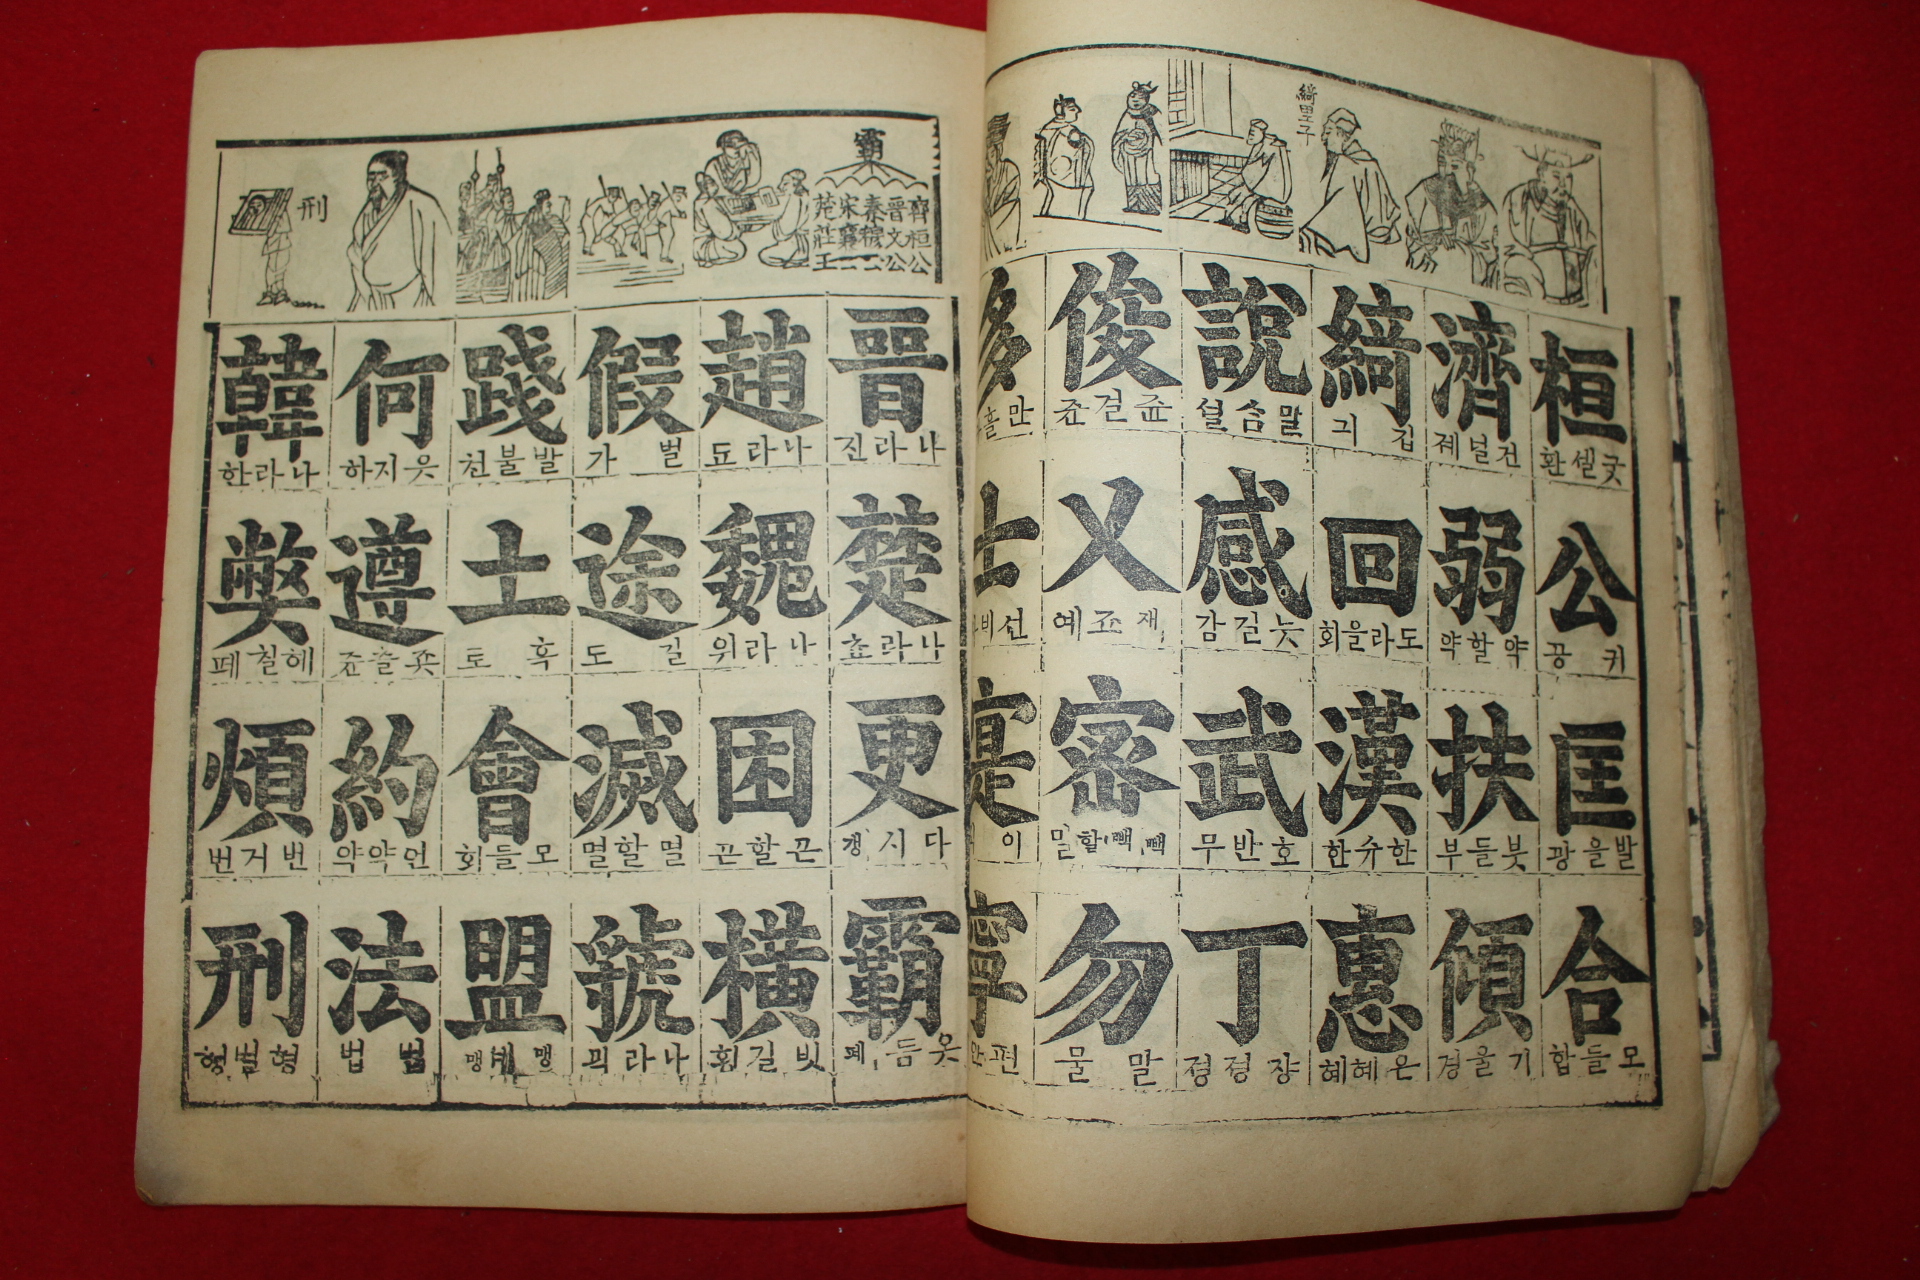 綺里子
桓
굿셀환
公
귀공
匡
발을광
合
모들합
濟
건널졔
弱
약할약
扶
붓들부
傾
기울경
綺
깁긔
回
도라올회
漢
한슈한
惠
은혜혜
說
말슴셜
感
늣길감
武
호반무
丁
쟝졍졍
俊
쥰걸쥰
乂
재죠예
密
빽빽할밀
勿
말물
多
만흘
士
선비
寔
이
寧
편안
霸
齊桓公
晉文公
秦穆公
宋襄公
楚莊王
刑
晉
나라진
楚
나라쵸
更
다시갱
霸
읏듬패
趙
나라됴
魏
나라위
困
곤할곤
橫
빗길횡
假
빌가
途
길도
滅
멸할멸
虢
나라괵
踐
발불쳔
土
흑토
會
모들회
盟
맹셰맹
何
웃지하
遵
죳츨쥰
約
언약약
法
법법
韓
나라한
弊
해칠폐
煩
번거번
刑
형벌형